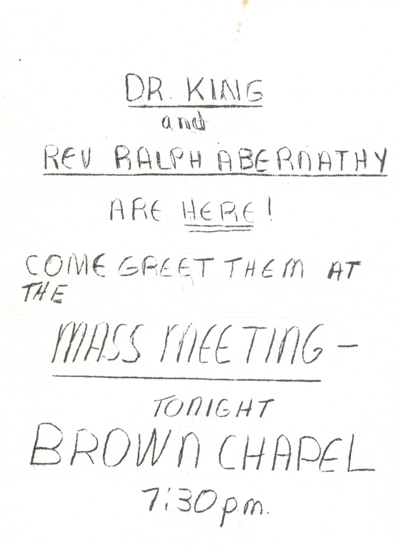 DR. KING
and
REV RALPH ABERNATHY
ARE HERE!
COME GREET THEM AT
THE
MASS MEETING -
TONIGHT
BROWN CHAPEL
7:30 pm.